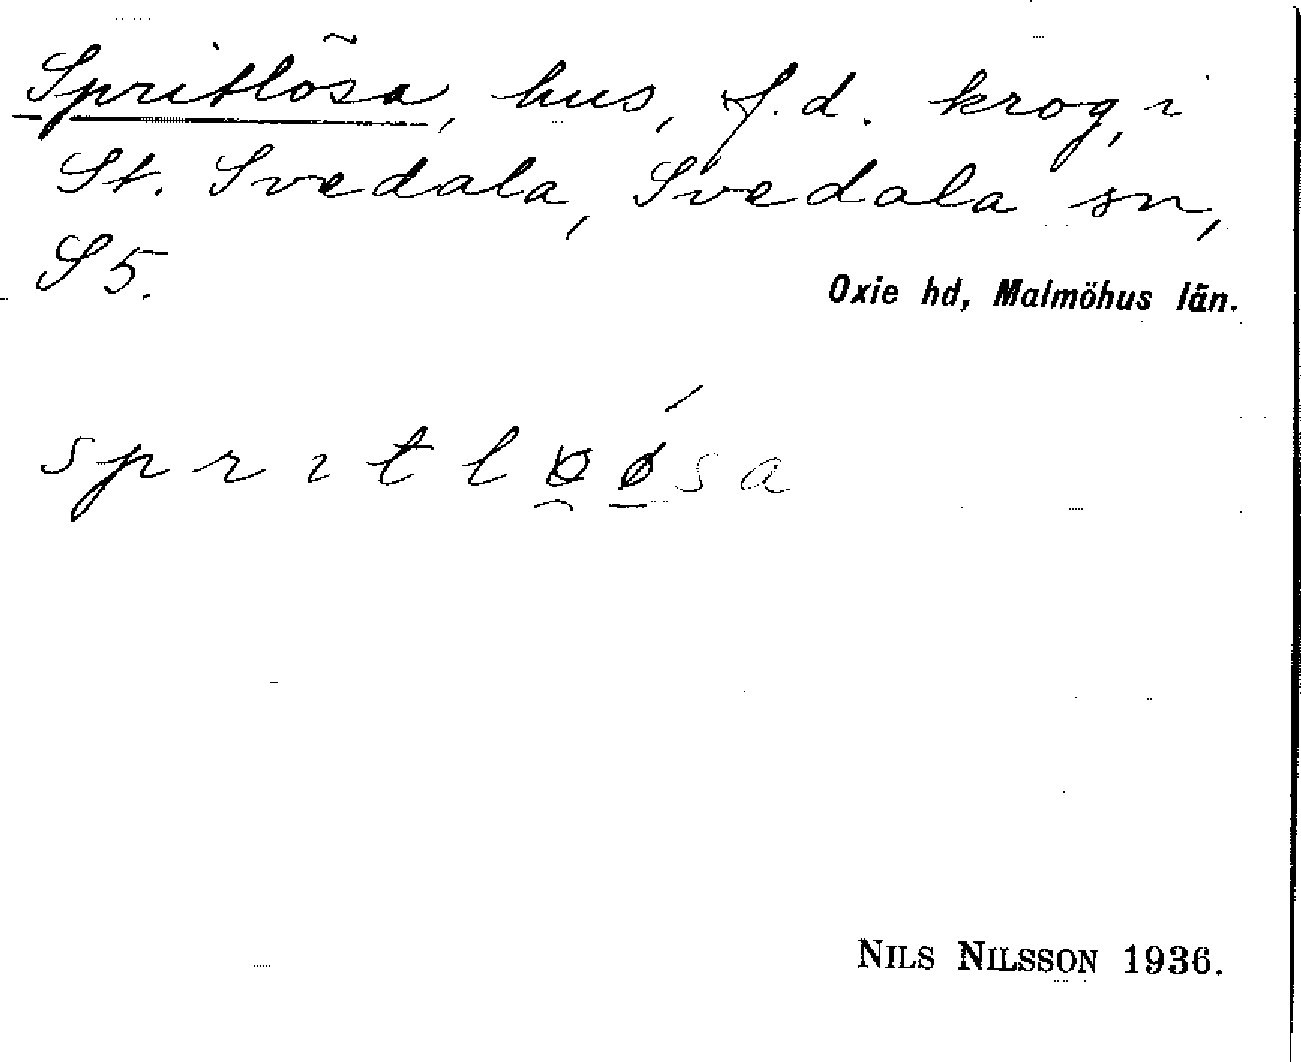 Spritlösa, hus, f.d. krog, i
St. Svedala, Svedala sn,
S 5.
Oxie hd, Malmöhus län.
NILS NILSSON 1936.